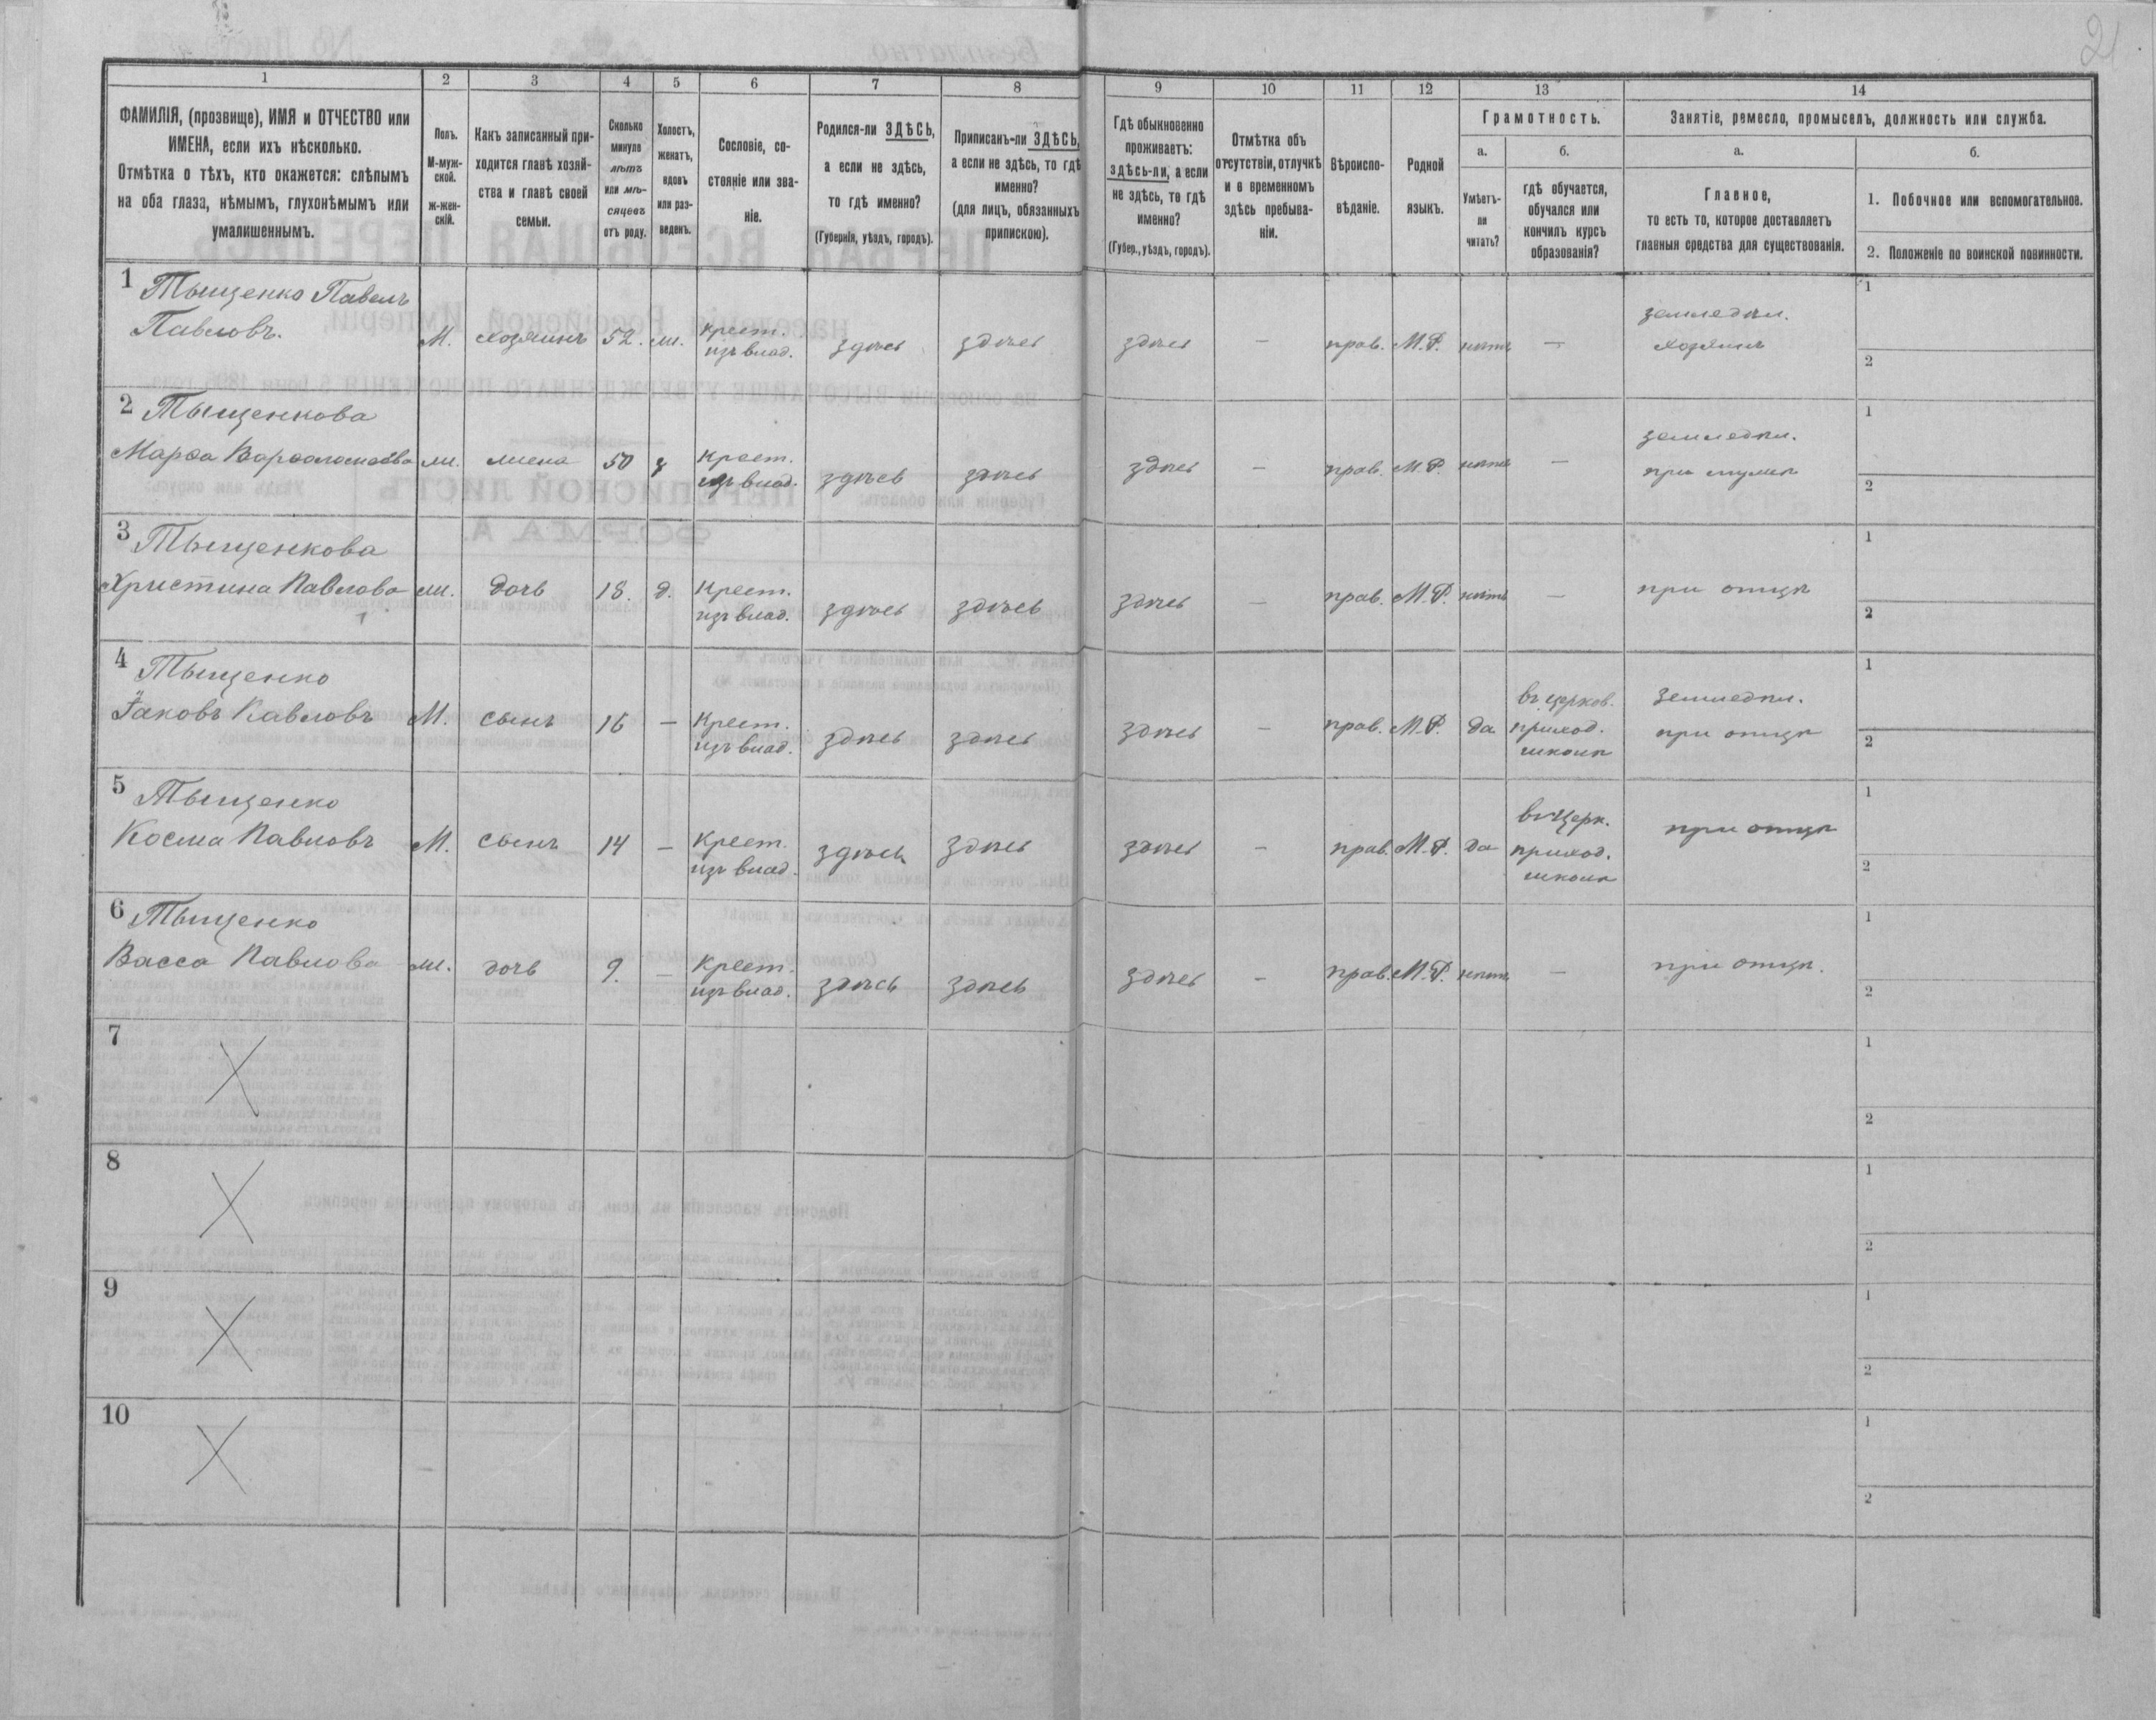 2
1 2 3 4 5 6 7 8 9 10 11 12 13 14
ФАМИЛІЯ, (прозвище), ИМЯ и ОТЧЕСТВО или
ИМЕНА, если ихъ нѣсколько.
Отмѣтка о тѣхъ, кто окажется: слѣпымъ
на оба глаза, нѣмымъ, глухонѣмымъ или
умалишеннымъ.
Полъ.
М-муж-
ской.
ж-жен-
скій.
Какъ записанный при-
ходится главѣ хозяй-
ства и главѣ своей
семьи.
Сколько
минуло
лѣтъ
или мѣ-
сяцевъ
отъ роду.
Холостъ,
женатъ,
вдовъ
или раз-
веденъ.
Сословіе, со-
стояніе или зва-
ніе.
Родился-ли ЗДѢСЬ,
а если не здѣсь,
то гдѣ именно?
(Губернія, уѣздъ, городъ).
Приписанъ-ли ЗДѢСЬ,
а если не здѣсь, то гдѣ
именно?
(для лицъ, обязанныхъ
припискою).
Гдѣ обыкновенно
проживаетъ:
здѣсь-ли, а если
не здѣсь, то гдѣ
именно?
(Губер., уѣздъ, городъ).
Отмѣтка объ
отсутствіи, отлучкѣ
и о временномъ
здѣсь пребыва-
ніи.
Вѣроиспо-
вѣданіе.
Родной
языкъ.
Грамотность.
а.
Умѣетъ-
ли
читать?
б.
гдѣ обучается,
обучался или
кончилъ курсъ
образованія?
Занятіе, ремесло, промыселъ, должность или служба.
а.
Главное,
то есть то, которое доставляетъ
главныя средства для существованія.
б.
1. Побочное или вспомогательное.
2. Положеніе по воинской повинности.
1 Тыщенко Павелъ
Павловъ. М. хозяинъ 52. ж. крест. изъ влад. здѣсь здѣсь здѣсь — прав. М.Р. нѣтъ — земледѣл. хозяинъ 1 2
2 Тыщенкова
Марѳа Варѳоломѣева ж. жена 50 з Крест. изъ влад. здѣсь здѣсь здѣсь — прав. М.Р. нѣтъ — земледѣл. при мужѣ 1 2
3 Тыщенкова
Христина Павлова ж. дочь 18. д. Крест. изъ влад. здѣсь здѣсь здѣсь — прав. М.Р. нѣтъ — при отцѣ 1 2
4 Тыщенко
Іаковъ Павловъ М. сынъ 16 — Крест. изъ влад. здѣсь здѣсь здѣсь — прав. М.Р. да въ церков. приход. школѣ земледѣл. при отцѣ 1 2
5 Тыщенко
Косма Павловъ М. сынъ 14 — Крест. изъ влад. здѣсь здѣсь здѣсь — прав. М.Р. да въ церк. приход. школѣ при отцѣ 1 2
6 Тыщенко
Васса Павлова ж. дочь 9. — Крест. изъ влад. здѣсь здѣсь здѣсь — прав. М.Р. нѣтъ — при отцѣ. 1 2
7 1 2
8 1 2
9 1 2
10 1 2